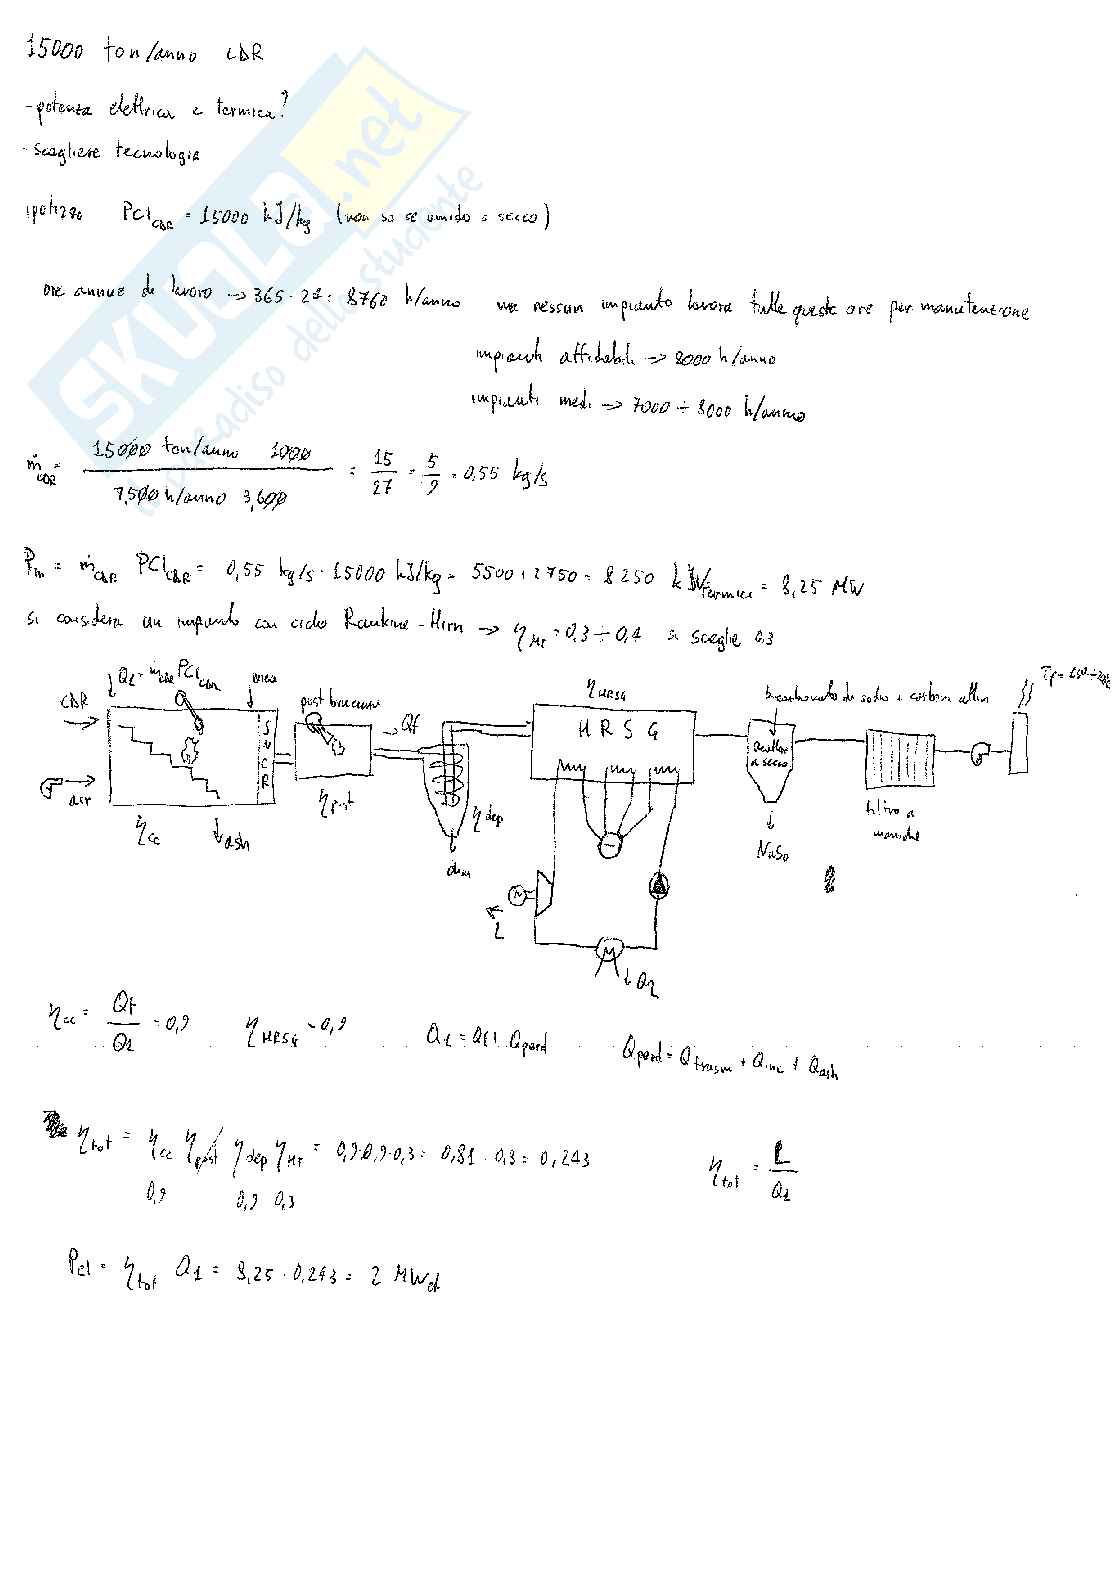 15000 ton/anno CDR
- potenza elettrica e termica?
- scegliere tecnologia
ipotizzo PCI CDR = 15000 kJ/kg (non so se umido o secco)
ore annue di lavoro → 365 · 24 = 8760 h/anno ma nessun impianto lavora tutte queste ore per manutenzione
impianti affidabili → 8000 h/anno
impianti medi → 7000 ÷ 8000 h/anno
ṁ CDR = 15000 ton/anno 1000 / 7,500 h/anno 3,600 = 15/27 = 5/9 = 0,55 kg/s
P in = ṁ CDR PCI CDR = 0,55 kg/s · 15000 kJ/kg = 5500 + 2750 = 8250 kW termici = 8,25 MW
si considera un impianto con ciclo Rankine-Hirn → η = 0,3 ÷ 0,4 si sceglie 0,3
Q1 = ṁ CDR PCI CDR
CDR
urea
post bruciatore
Qf
η HRSG
bicarbonato di sodio + carbon attivi
HRSG
SNCR
reattore a secco
aria
η cc
ash
η post
η dep
filtro a maniche
L
Q2
η cc = Qf / Q1 = 0,9 η HRSG = 0,9 Q1 = Qf + Qperd Qperd = Q trasm + Q inc + Q ash
η tot = η cc η post η dep η HI = 0,9·0,9·0,3 = 0,81 · 0,3 = 0,243 η tot = L / Q1
0,9 0,9 0,3
Pel = η tot Q1 = 8,25 · 0,243 = 2 MW el
SKUOLA.net
il paradiso dello studente